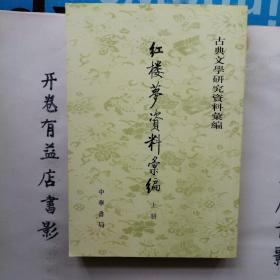 古典文學研究資料彙編
红楼夢资料彙编
上册
中華書局
开卷有益店書影